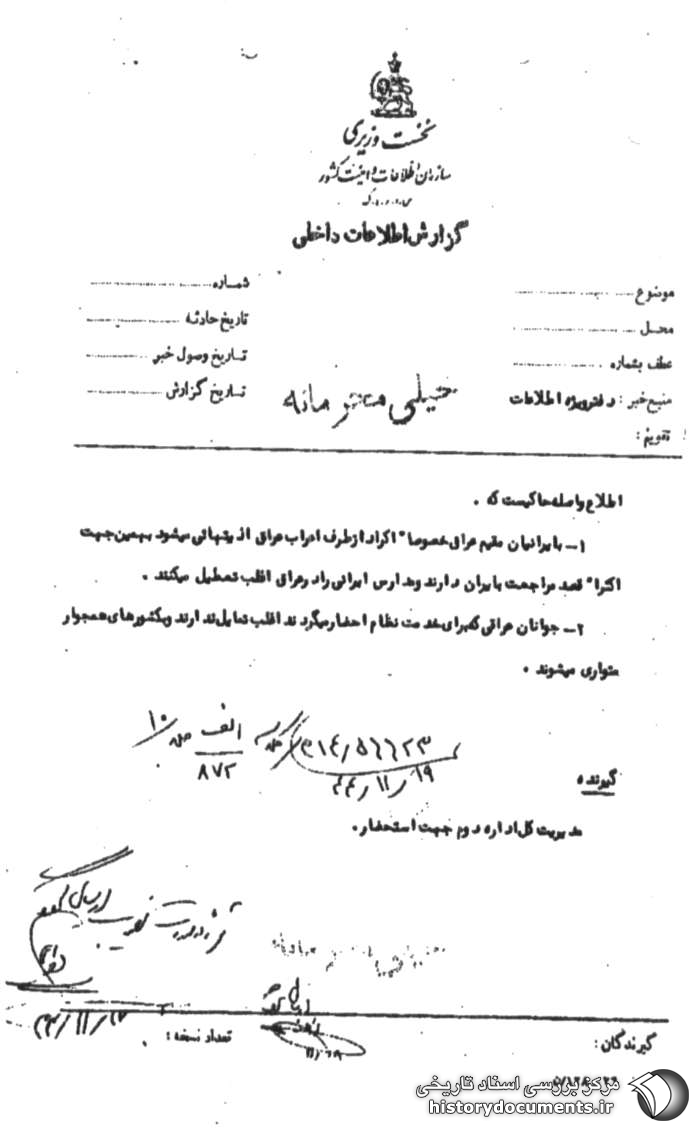 نخست وزیری
سازمان اطلاعات و امنیت کشور
س.ا.و.ا.ک
گزارش اطلاعات داخلی
موضوع
شماره
محل
تاریخ حادثه
عطف بشماره
تاریخ وصول خبر
منبع خبر : دفتر ویژه اطلاعات
تاریخ گزارش
تقویم :
خیلی محرمانه
اطلاع واصله حاکیست که .
۱- با ایرانیان مقیم عراق خصوصا" اکراد از طرف اعراب عراق اذیتهائی میشود بهمین جهت
اکثرا" قصد مراجعت بایران دارند و مدارس ایرانی را در عراق اغلب تعطیل میکنند .
۲- جوانان عراقی که برای خدمت نظام احضار میگردند اغلب تمایل ندارند و بکشورهای همجوار
متواری میشوند .
۳۱۴/۵۶۶۲۳
۴۴/۱۱/۱۹
الف
۸۷۲
۱۰
گیرنده
مدیریت کل اداره دوم جهت استحضار .
گیرندگان :
تعداد نسخه :
مرکز بررسی اسناد تاریخی
historydocuments.ir